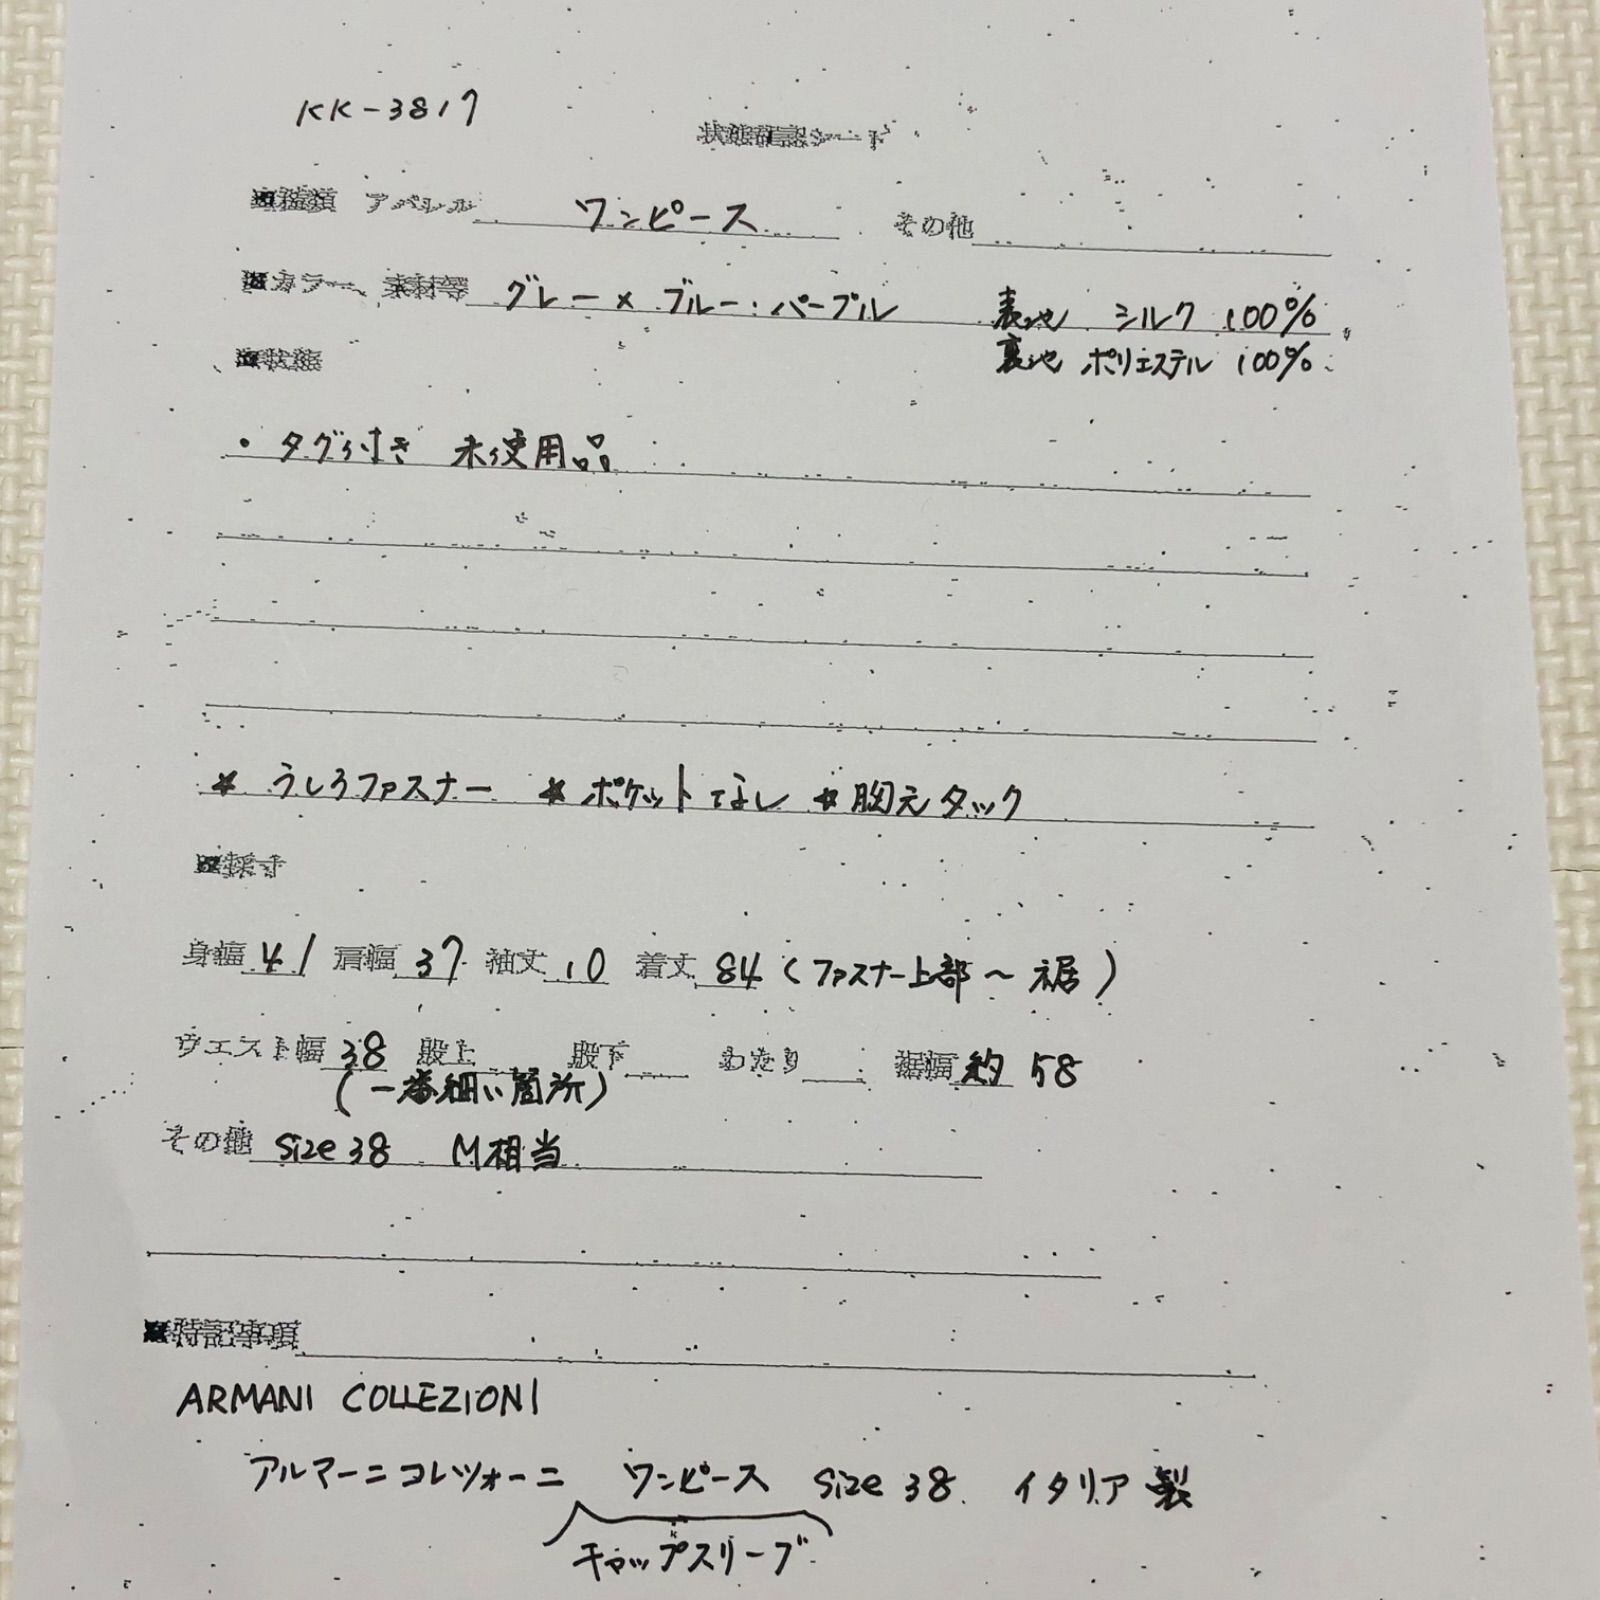 KK-3817
状態確認シート
■種類 アパレル ワンピース その他
■カラー、素材等 グレー×ブルー:パープル 表地 シルク 100%
裏地 ポリエステル 100%
■状態
・タグ付き 未使用品
* うしろファスナー * ポケットなし * 胸元タック
■採寸
身幅 41 肩幅 37 袖丈 10 着丈 84 (ファスナー上部〜裾)
ウエスト幅 38 股上 股下 わたり 裾幅 約 58
(一番細い箇所)
その他 size 38 M相当
■特記事項
ARMANI COLLEZIONI
アルマーニコレツォーニ ワンピース size 38. イタリア製
キャップスリーブ